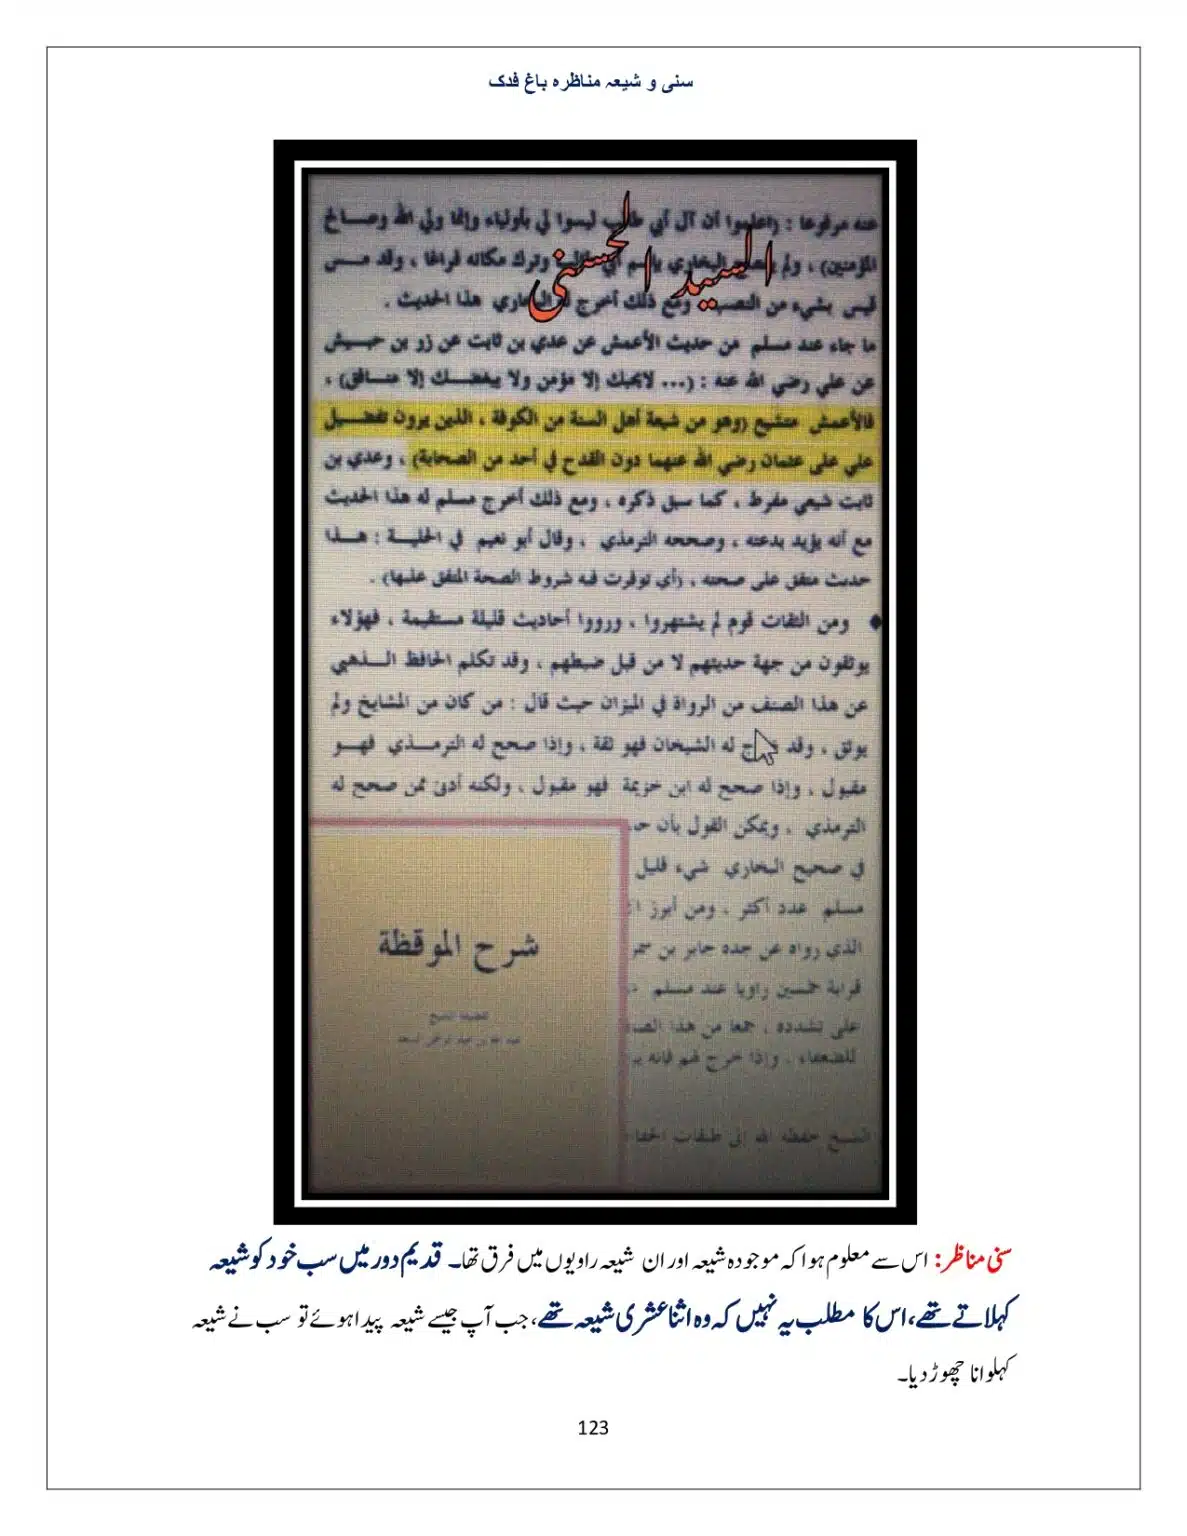 سنی و شیعہ مناظرہ باغ فدک
عنه مرفوعا : (اعلموا أن آل أبي طالب ليسوا لي بأولياء وإنما ولي الله وصالح
المؤمنين) ، ولم البخاري وترك مكانه فراغا ، وقد مس
قيس بشيء من النصب ومع ذلك أخرج له البخاري هذا الحديث .
السيد الحسنی
ما جاء عند مسلم من حديث الأعمش عن عدي بن ثابت عن زر بن حبيش
عن علي رضي الله عنه : (... لايحبك إلا مؤمن ولا يبغضك إلا منافق) ،
فالأعمش متشيع (وهو من شيعة أهل السنة من الكوفة ، الذين يرون تفضيل
علي على عثمان رضي الله عنهما دون القدح في أحد من الصحابة) ، وعدي بن
ثابت شيعي مفرط ، كما سبق ذكره ، ومع ذلك أخرج مسلم له هذا الحديث
مع أنه يؤيد بدعته ، وصححه الترمذي ، وقال أبو نعيم في الحلية : هذا
حديث متفق على صحته ، (أي توفرت فيه شروط الصحة المتفق عليها) .
♦ ومن الثقات قوم لم يشتهروا ، ورووا أحاديث قليلة مستقيمة ، فهؤلاء
يوثقون من جهة حديثهم لا من قبل ضبطهم ، وقد تكلم الحافظ الذهبي
عن هذا الصنف من الرواة في الميزان حيث قال : من كان من المشايخ ولم
يوثق ، وقد له الشيخان فهو ثقة ، وإذا صحح له الترمذي فهو
مقبول ، وإذا صحح له ابن خزيمة فهو مقبول ، ولكنه أدنى ممن صحح له
الترمذي ، ويمكن القول بأن
في صحيح البخاري شيء قليل
مسلم عدد أكثر ، ومن أبرز
الذي رواه عن جده جابر بن سمر
قرابة خمسين راويا عند مسلم
على تشدده ، جمعا من هذا
للضعفاء ، وإذا خرج لهم فانه
الشيخ حفظه الله إلى طبقات
شرح الموقظة
سنی مناظر: اس سے معلوم ہوا کہ موجودہ شیعہ اور ان شیعہ راویوں میں فرق تھا۔ قدیم دور میں سب خود کو شیعہ
کہلاتے تھے، اس کا مطلب یہ نہیں کہ وہ اثنا عشری شیعہ تھے، جب آپ جیسے شیعہ پیدا ہوئے تو سب نے شیعہ
کہلوانا چھوڑ دیا۔
123